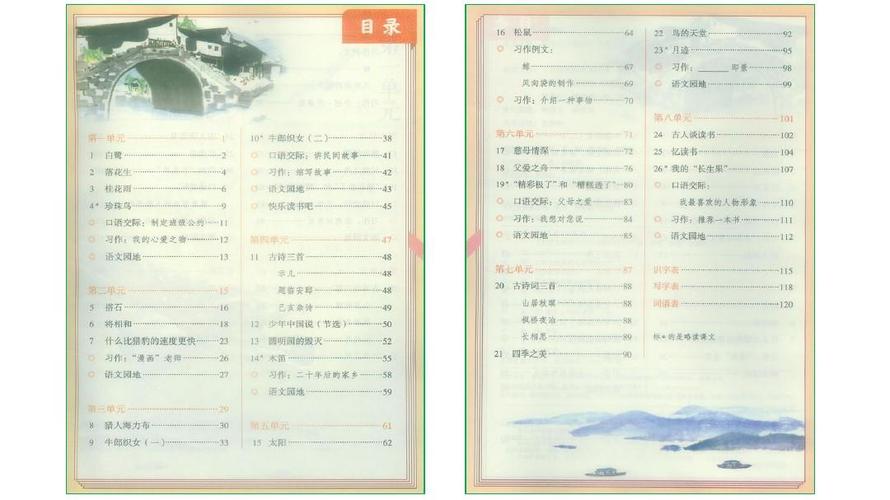 目录
第一单元 1
1 白鹭 2
2 落花生 4
3 桂花雨 6
4* 珍珠鸟 9
口语交际:制定班级公约 11
习作:我的心爱之物 12
语文园地 13
第二单元 15
5 搭石 16
6 将相和 18
7 什么比猎豹的速度更快 23
习作:“漫画”老师 26
语文园地 27
第三单元 29
8 猎人海力布 30
9 牛郎织女(一) 33
10* 牛郎织女(二) 38
口语交际:讲民间故事 41
习作:缩写故事 42
语文园地 43
快乐读书吧 45
第四单元 47
11 古诗三首 48
示儿 48
题临安邸 48
己亥杂诗 49
12 少年中国说(节选) 50
13 圆明园的毁灭 52
14* 木笛 55
习作:二十年后的家乡 58
语文园地 59
第五单元 61
15 太阳 62
16 松鼠 64
习作例文:
鲸 67
风向袋的制作 69
习作:介绍一种事物 70
第六单元 71
17 慈母情深 72
18 父爱之舟 76
19* “精彩极了”和“糟糕透了” 80
口语交际:父母之爱 83
习作:我想对您说 84
语文园地 85
第七单元 87
20 古诗词三首 88
山居秋暝 88
枫桥夜泊 88
长相思 89
21 四季之美 90
22 鸟的天堂 92
23* 月迹 95
习作:______即景 98
语文园地 99
第八单元 101
24 古人谈读书 102
25 忆读书 104
26* 我的“长生果” 107
口语交际:
我最喜欢的人物形象 110
习作:推荐一本书 111
语文园地 112
识字表 115
写字表 118
词语表 120
标*的是略读课文